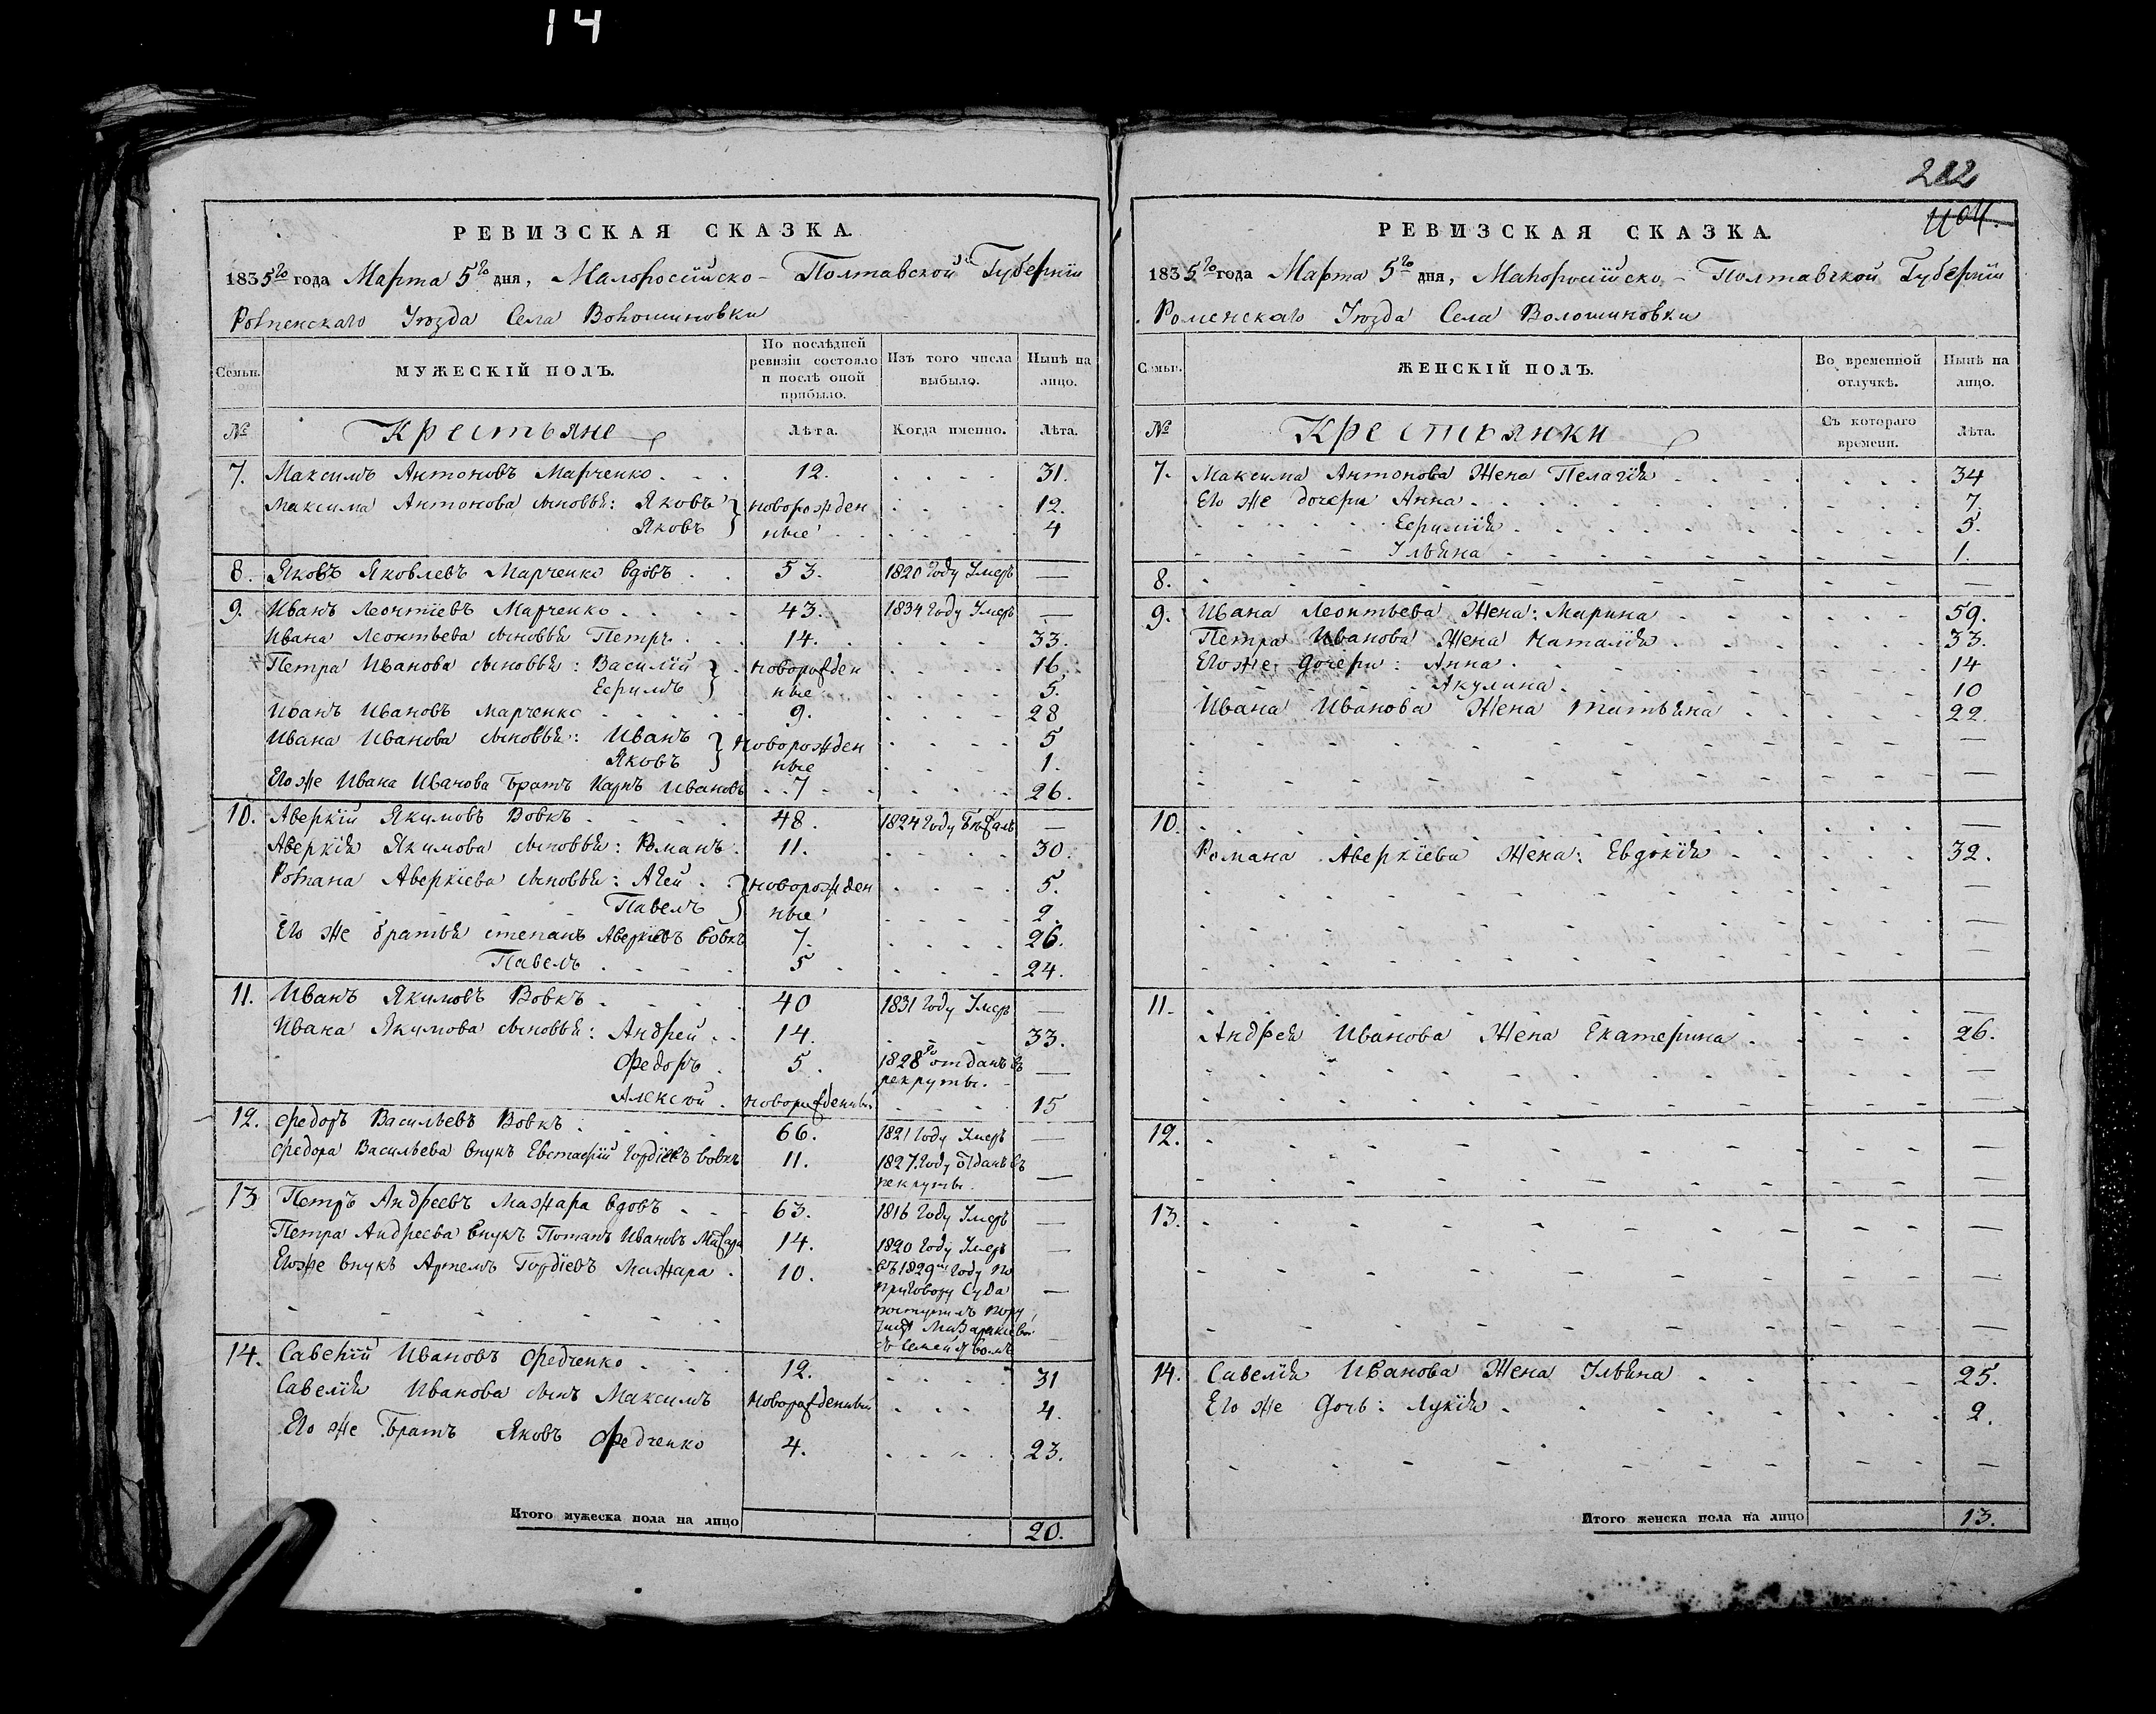 14
РЕВИЗСКАЯ СКАЗКА.
1835го года Марта 5го дня, Малоросiйско-Полтавской Губернiи
Роменскаго Уѣзда Села Волошиновки
Семьи.
МУЖЕСКІЙ ПОЛЪ.
По послѣдней ревизіи состояло и послѣ оной прибыло.
Изъ того числа выбыло.
Нынѣ на лицо.
№ Крестьяне Лѣта. Когда именно. Лѣта.
7. Максимъ Антоновъ Марченко 12. 31.
Максима Антонова сыновья: Яковъ новорожден 12.
Яковъ ные 4
8. Яковъ Яковлевъ Марченко вдовъ 53. 1820 году Умеръ —
9. Иванъ Леонтiевъ Марченко 43. 1834 году Умеръ —
Ивана Леонтьева сыновья Петръ 14. 33.
Петра Иванова сыновья: Василiй новорожден 16.
Ефримъ ные 5.
Иванъ Ивановъ Марченко 9. 28
Ивана Иванова сыновья: Иванъ новорожден 5
Яковъ ные 1.
Его же Ивана Иванова Братъ Карпъ Ивановъ 7 26.
10. Аверкiй Якимовъ Вовкъ 48. 1824 году Бѣжалъ —
Аверкiя Якимова сыновья: Романъ 11. 30.
Романа Аверкiева сыновья: Агей новорожден 5.
Павелъ ные 2.
Его же братья степанъ Аверкiевъ вовкъ 7. 26.
Павелъ 5 24.
11. Иванъ Якимовъ Вовкъ 40 1831 году Умеръ —
Ивана Якимова сыновья: Андрей 14. 33.
Федоръ 5. 1828го отданъ въ —
рекруты.
Алексѣй новорожденный 15
12. Федоръ Васильевъ Вовкъ 66. 1821 году Умеръ —
Федора Васильева внукъ Евстафiй Гордiевъ вовкъ 11. 1827. году отданъ въ —
рекруты.
13 Петръ Андреевъ Мажара вдовъ 63. 1816 году Умеръ —
Петра Андреева внукъ Потапъ Ивановъ Мажара 14. 1820 году Умеръ —
Его же внукъ Артемъ Гордiевъ Мажара 10. въ 1829м году по
приговору Суда —
поступилъ
14. Савелiй Ивановъ Федченко 12. 31
Савелiя Иванова сынъ Максимъ Новорожденный 4.
Его же Братъ Яковъ Федченко 4. 23.
Итого мужеска пола на лицо 20.
212
404.
РЕВИЗСКАЯ СКАЗКА.
1835го года Марта 5го дня, Малоросiйско-Полтавской Губернiи
Роменскаго Уѣзда Села Волошиновки
Семьи.
ЖЕНСКІЙ ПОЛЪ.
Во временной отлучкѣ.
Нынѣ на лицо.
№ Крестьянки Съ котораго времени. Лѣта.
7. Максима Антонова Жена Пелагiя 34
Его же дочери Анна 7.
Ефримiя 5.
Ульяна 1.
8. —
9. Ивана Леонтьева Жена: Марина 59.
Петра Иванова Жена Наталiя 33.
Его же дочери: Анна 14
Акулина 10
Ивана Иванова Жена татьяна 22.
—
—
10. —
Романа Аверкiева Жена: Евдокiя 32.
—
—
—
11. —
Андрея Иванова Жена Екатерина 26.
—
—
12. —
—
13. —
—
—
14. Савелiя Иванова Жена Ульяна 25.
Его же Дочь: Лукiя 2.
—
Итого женска пола на лицо 13.